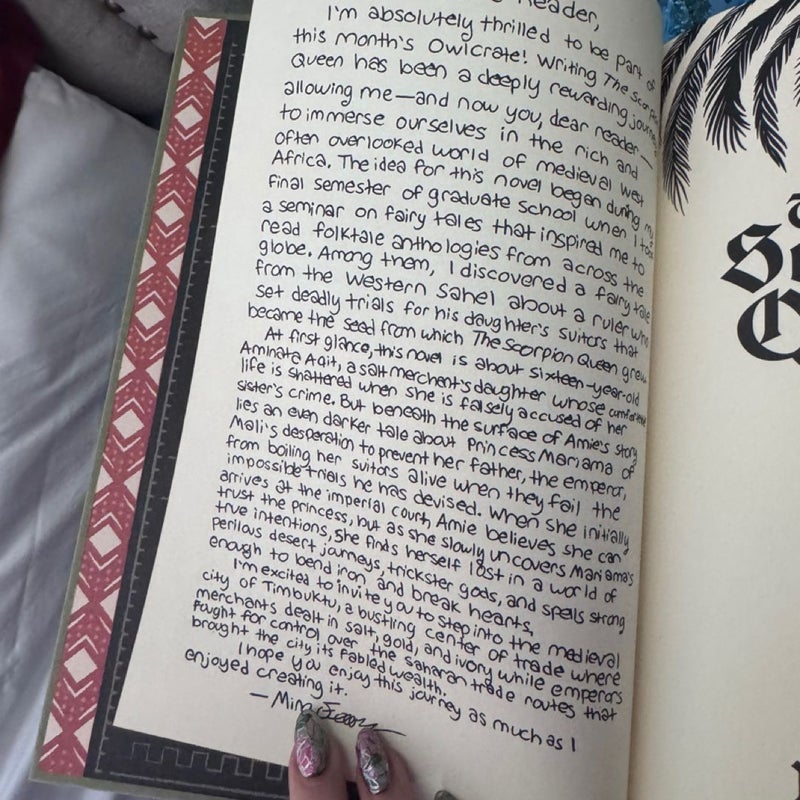 Reader,
I'm absolutely thrilled to be part of
this month's Owlcrate! Writing The Scorpion
Queen has been a deeply rewarding journey
allowing me—and now you, dear reader—
to immerse ourselves in the rich and
often overlooked world of medieval West
Africa. The idea for this novel began during my
final semester of graduate school when I took
a seminar on fairy tales that inspired me to
read folktale anthologies from across the
globe. Among them, I discovered a fairy tale
from the Western Sahel about a ruler who
set deadly trials for his daughter's suitors that
became the seed from which The Scorpion Queen grew.
At first glance, this novel is about sixteen-year-old
Aminata Aqit, a salt merchent's daughter whose comfortable
life is shattered when she is falsely accused of her
sister's crime. But beneath the surface of Amie's story
lies an even darker tale about Princess Mariama of
Mali's desperation to prevent her father, the emperor,
from boiling her suitors alive when they fail the
impossible trials he has devised. When she initially
arrives at the imperial court, Amie believes she can
trust the princess, but as she slowly uncovers Mariama's
true intentions, she finds herself lost in a world of
perilous desert journeys, trickster gods, and spells strong
enough to bend iron and break hearts.
I'm excited to invite you to step into the medieval
city of Timbuktu, a bustling center of trade where
merchants dealt in salt, gold, and ivory while emperors
fought for control over the Saharan trade routes that
brought the city its fabled wealth.
I hope you enjoy this journey as much as I
enjoyed creating it.
— Mina